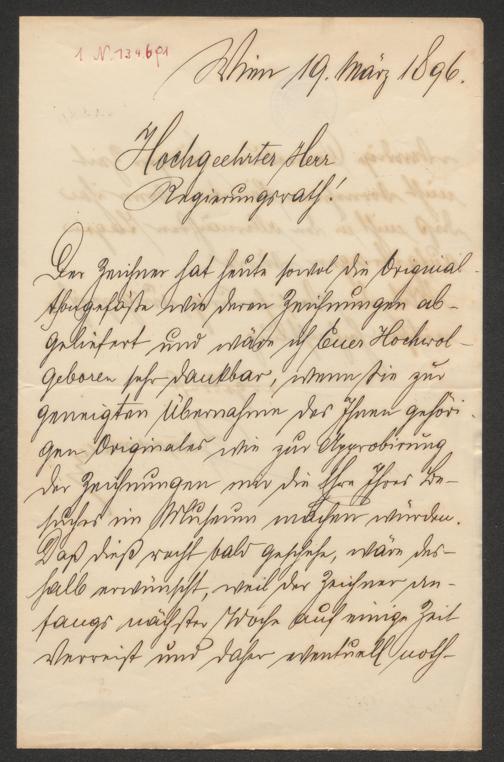 1 N. 134.691
Wien 19. März 1896.
Hochgeehrter Herr
Regierungsrath!
Der Zeichner hat heute sowol die Original-
thongefäße wie deren Zeichnungen ab-
geliefert und wäre ich Euer Hochwol-
geboren sehr dankbar, wenn Sie zur
geneigten Übernahme des Ihnen gehöri-
gen Originales wie zur Approbirung
der Zeichnungen mir die Ehre Ihres Be-
suches im Museum machen würden.
Daß dieß recht bald geschehe, wäre des-
halb erwünscht, weil der Zeichner an-
fangs nächster Woche auf einige Zeit
verreist und daher eventuell noth-